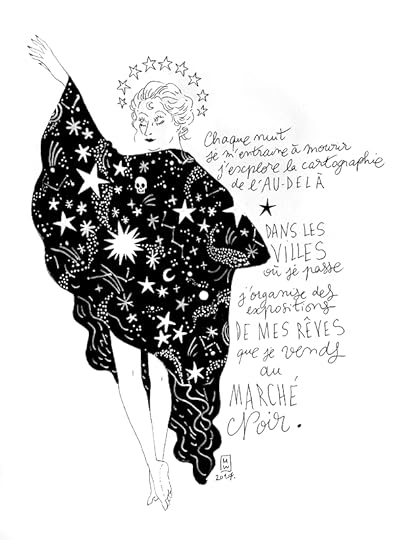 Chaque nuit
je m'entraine à mourir
j'explore la cartographie
de l'AU-DELÀ
DANS LES
VILLES
où je passe
j'organise des
expositions
DE MES RÊVES
que je vends
au
MARCHÉ
Noir.
MW
2017.